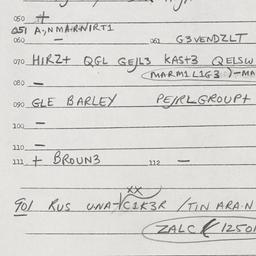 050 +
051 A-,NMARNIRT1
060 — 061 G3VENDZLT
070 HIRZ+ QGL GEJL3 KAST3 QELSW
(MARM1L1G3)-MA
080 —
090 GLE BARLEY PEJRLGROUP+
100 —
110 —
111 + BROUN3 112 —
XX
901 RUS UNA-1C1K3R /TIN ARA-N
ZALC